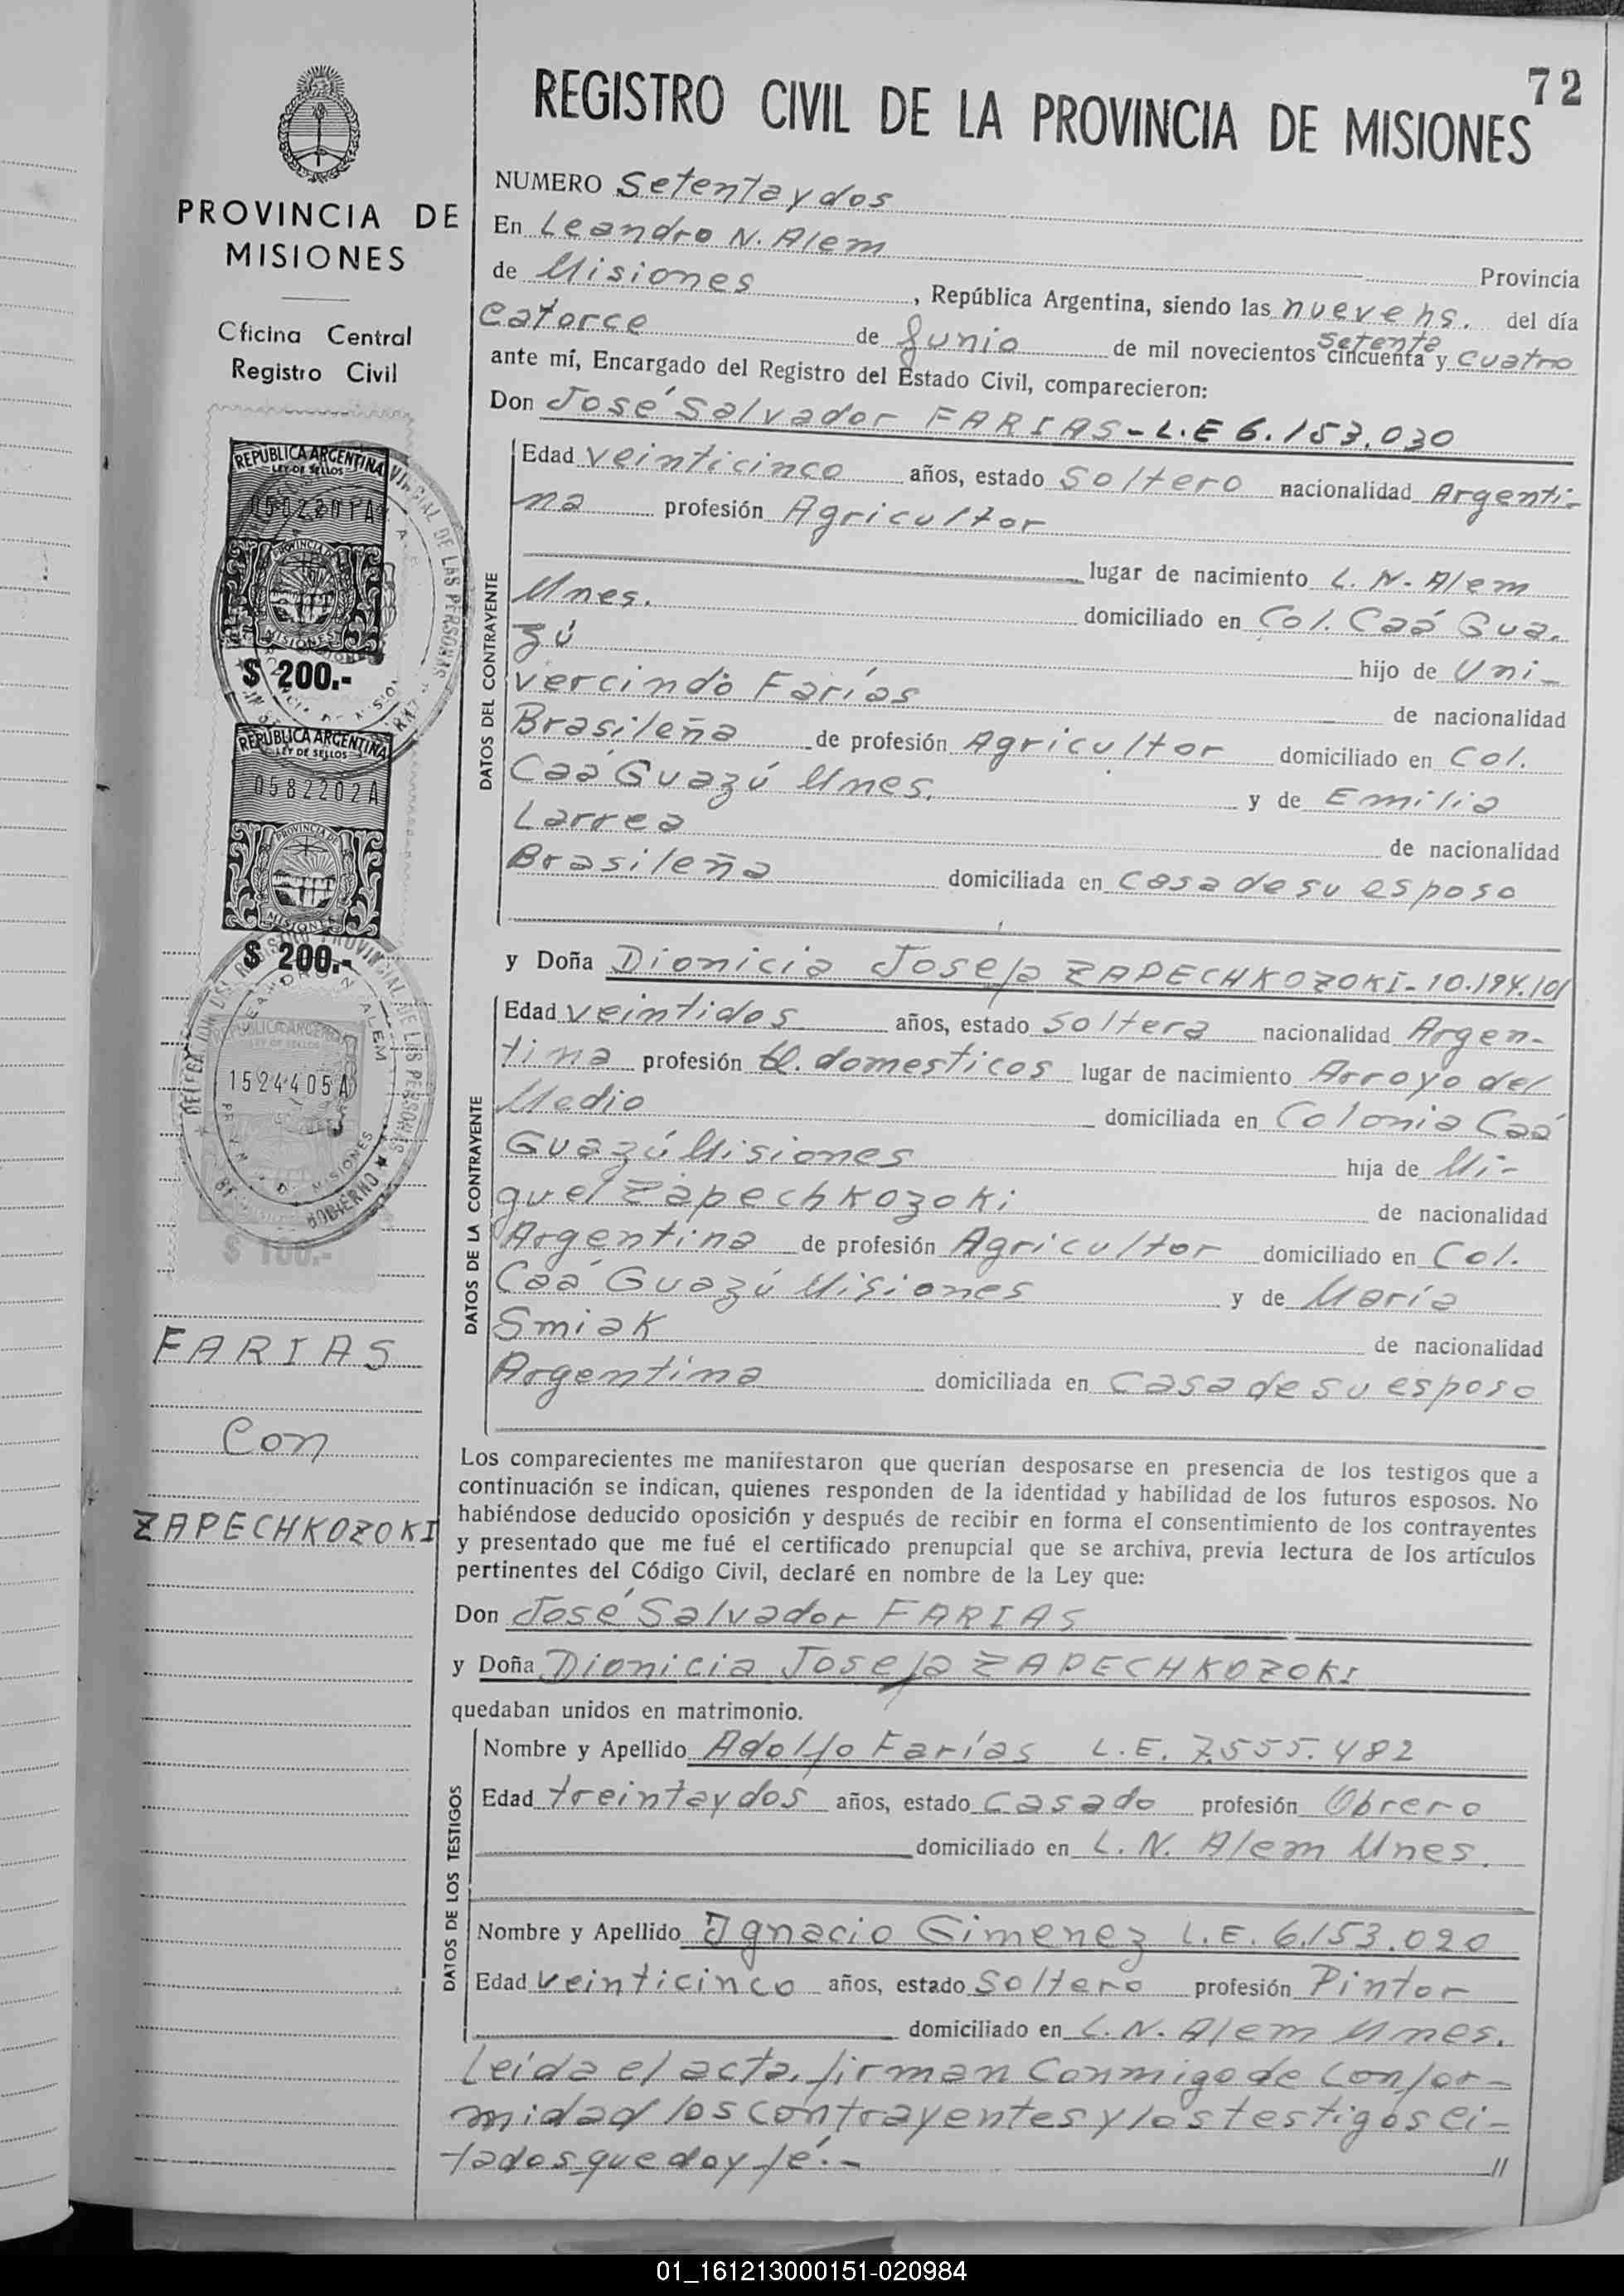 72
REGISTRO CIVIL DE LA PROVINCIA DE MISIONES
PROVINCIA DE
MISIONES
Oficina Central
Registro Civil
REPUBLICA ARGENTINA
LEY DE SELLOS
PROVINCIA DE
MISIONES
$ 200.-
REPUBLICA ARGENTINA
LEY DE SELLOS
0582202A
PROVINCIA DE
MISIONES
$ 200.-
1524405A
$ 100.-
FARIAS
Con
ZAPECHKOZOKI
NUMERO Setenta y dos
En Leandro N. Alem
Provincia
de Misiones, República Argentina, siendo las nueve hs. del día
catorce de Junio de mil novecientos cincuenta setenta y cuatro
ante mí, Encargado del Registro del Estado Civil, comparecieron:
Don José Salvador FARIAS - L.E 6.153.030
DATOS DEL CONTRAYENTE
Edad veinticinco años, estado Soltero nacionalidad Argenti-
na profesión Agricultor
lugar de nacimiento L. N. Alem
Mnes. domiciliado en Col. Caá Gua.
zú hijo de Uni-
vercindo Farías de nacionalidad
Brasileña de profesión Agricultor domiciliado en Col.
Caá Guazú Mnes. y de Emilia
Larrea de nacionalidad
Brasileña domiciliada en casa de su esposo
y Doña Dionicia Josefa ZAPECHKOZOKI - 10.194.101
DATOS DE LA CONTRAYENTE
Edad veintidos años, estado Soltera nacionalidad Argen-
tina profesión Q. domesticos lugar de nacimiento Arroyo del
Medio domiciliada en Colonia Caá
Guazú Misiones hija de Mi-
guel Zapechkozoki de nacionalidad
Argentina de profesión Agricultor domiciliado en Col.
Caá Guazú Misiones y de María
Smiak de nacionalidad
Argentina domiciliada en casa de su esposo
Los comparecientes me manifestaron que querían desposarse en presencia de los testigos que a
continuación se indican, quienes responden de la identidad y habilidad de los futuros esposos. No
habiéndose deducido oposición y después de recibir en forma el consentimiento de los contrayentes
y presentado que me fué el certificado prenupcial que se archiva, previa lectura de los artículos
pertinentes del Código Civil, declaré en nombre de la Ley que:
Don José Salvador FARIAS
y Doña Dionicia Josefa ZAPECHKOZOKI
quedaban unidos en matrimonio.
DATOS DE LOS TESTIGOS
Nombre y Apellido Adolfo Farías L.E. 7.555.482
Edad treinta y dos años, estado casado profesión Obrero
domiciliado en L. N. Alem Mnes.
Nombre y Apellido Ignacio Gimenez L.E. 6.153.020
Edad veinticinco años, estado Soltero profesión Pintor
domiciliado en L. N. Alem Mnes.
Leída el acta, firman conmigo de confor-
midad los contrayentes y los testigos ci-
tados que doy fé.- //
01_161213000151-020984